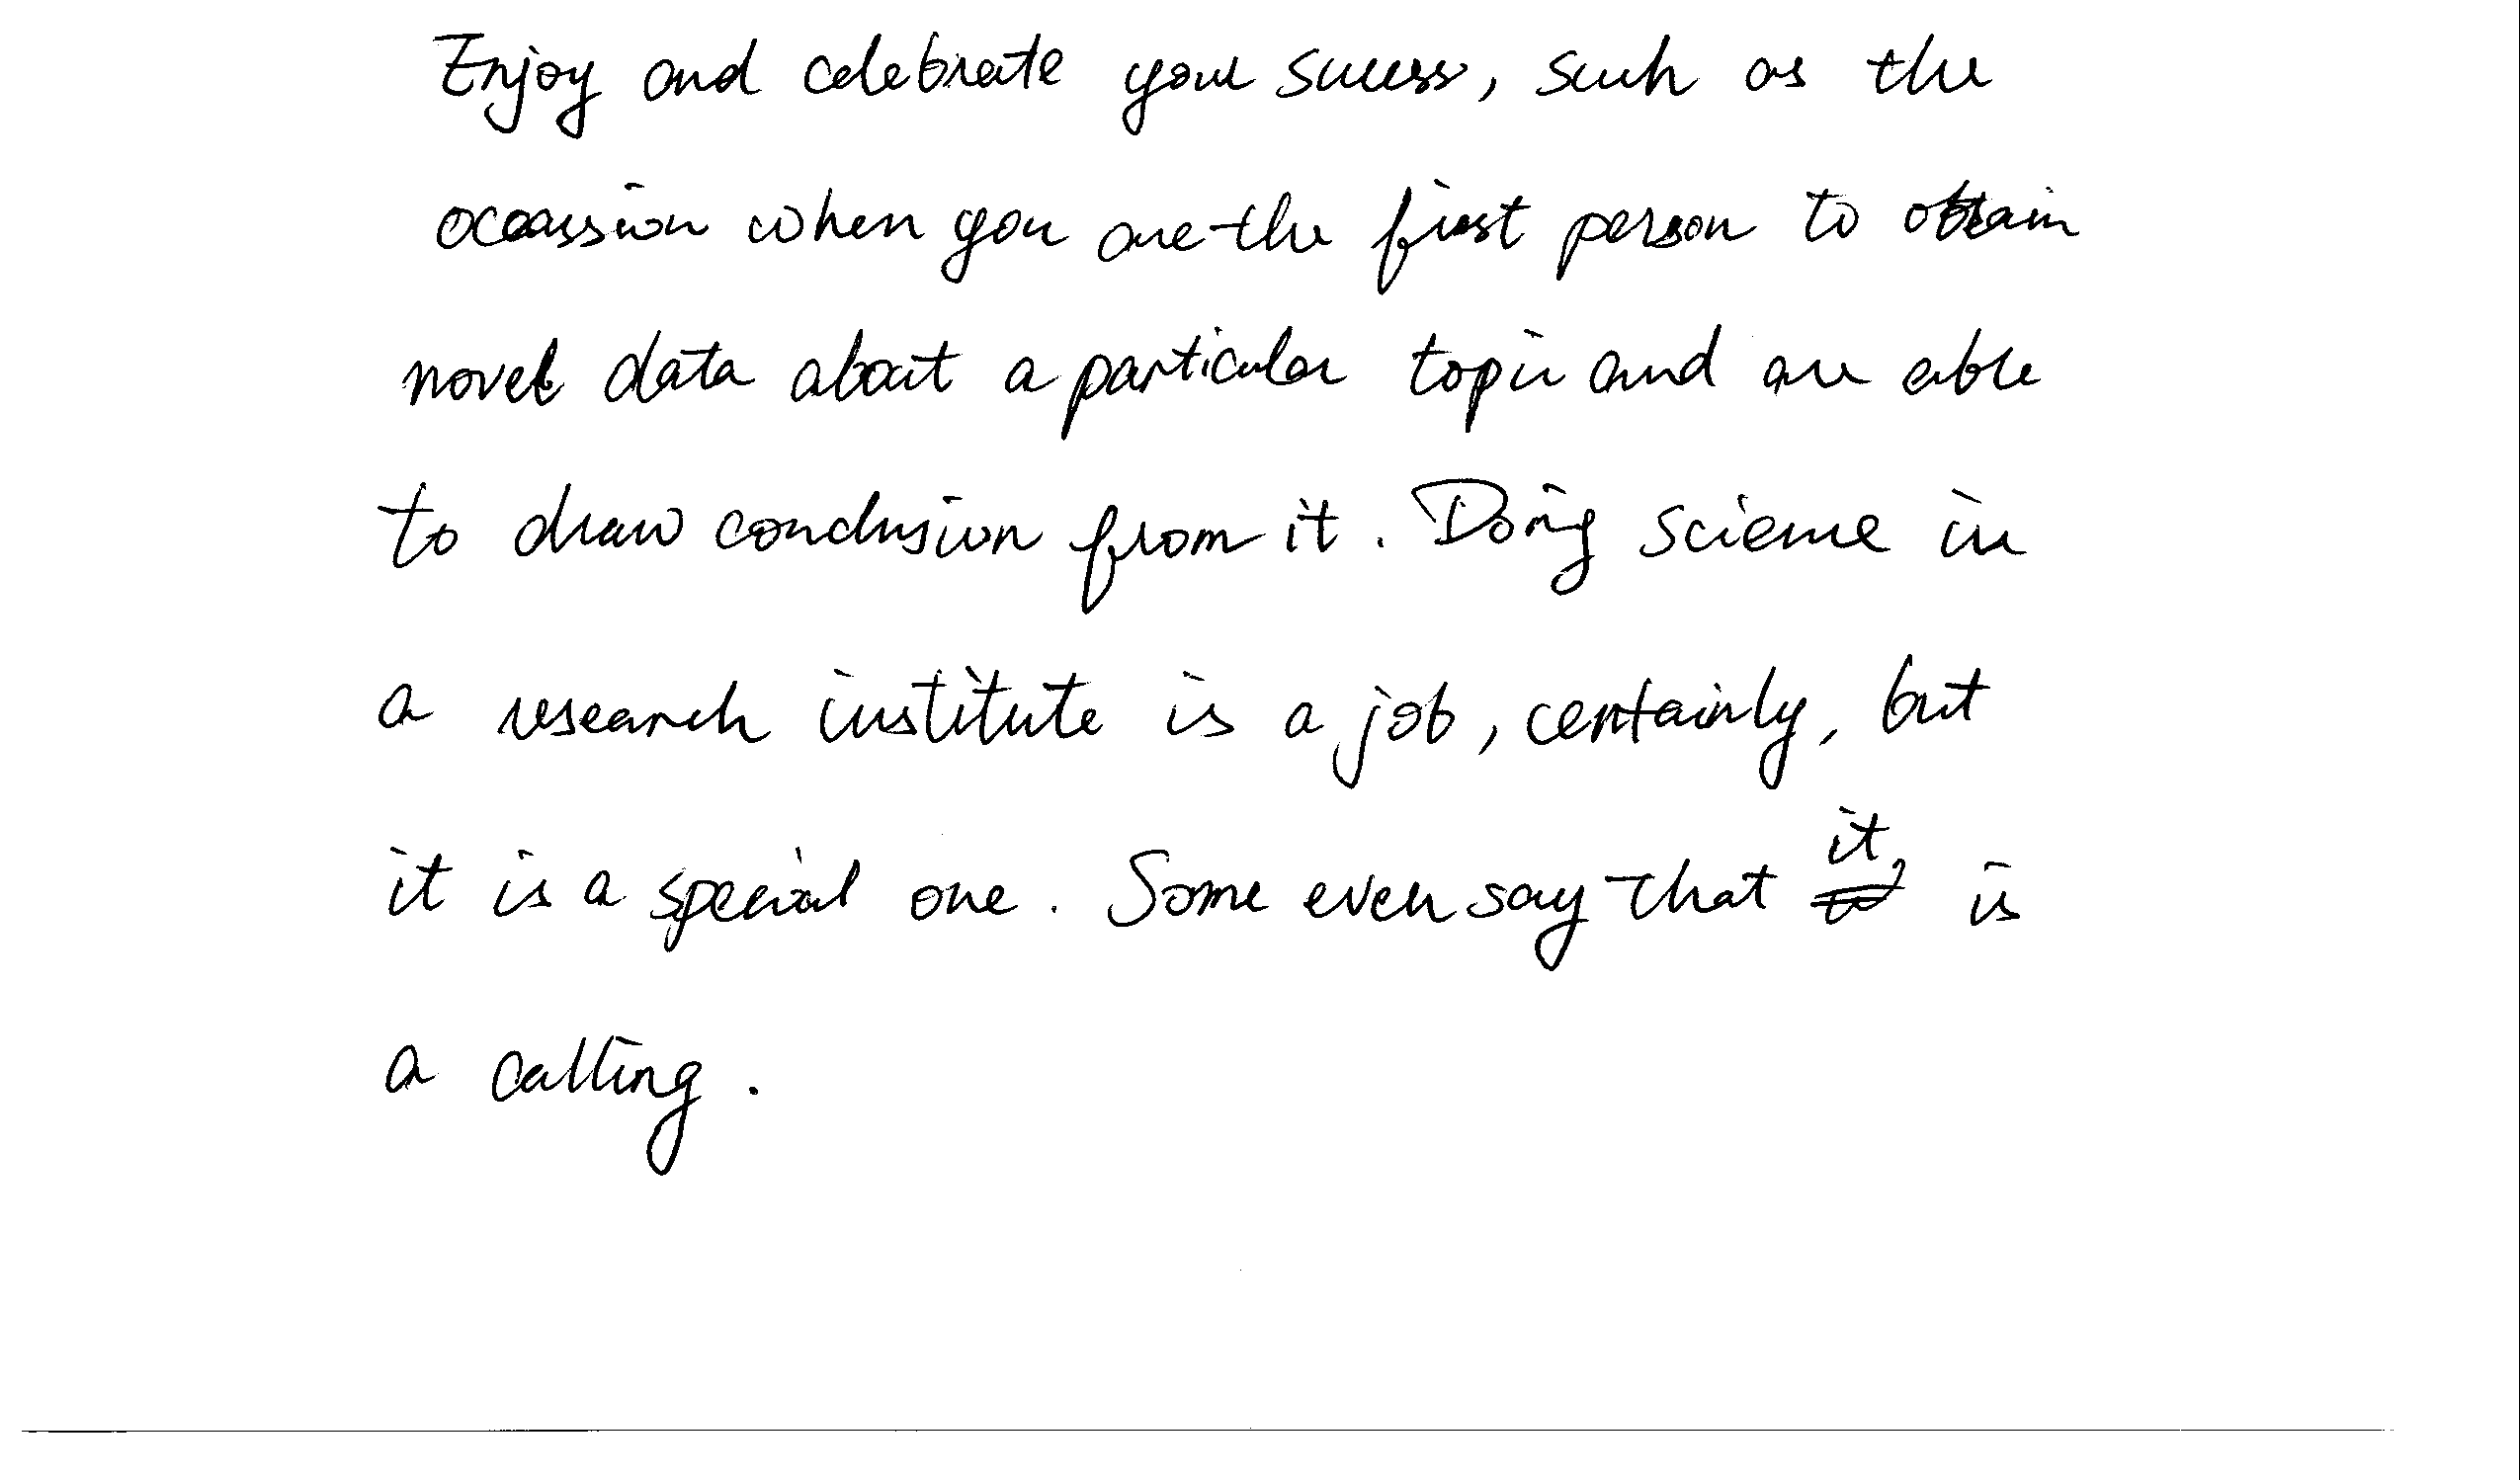 Enjoy and celebrate your success, such as the
occassion when you are the first person to obtain
novel data about a particular topic and are able
to draw conclusion from it. Doing science in
a research institute is a job, certainly, but
it is a special one. Some even say that it is
a calling.